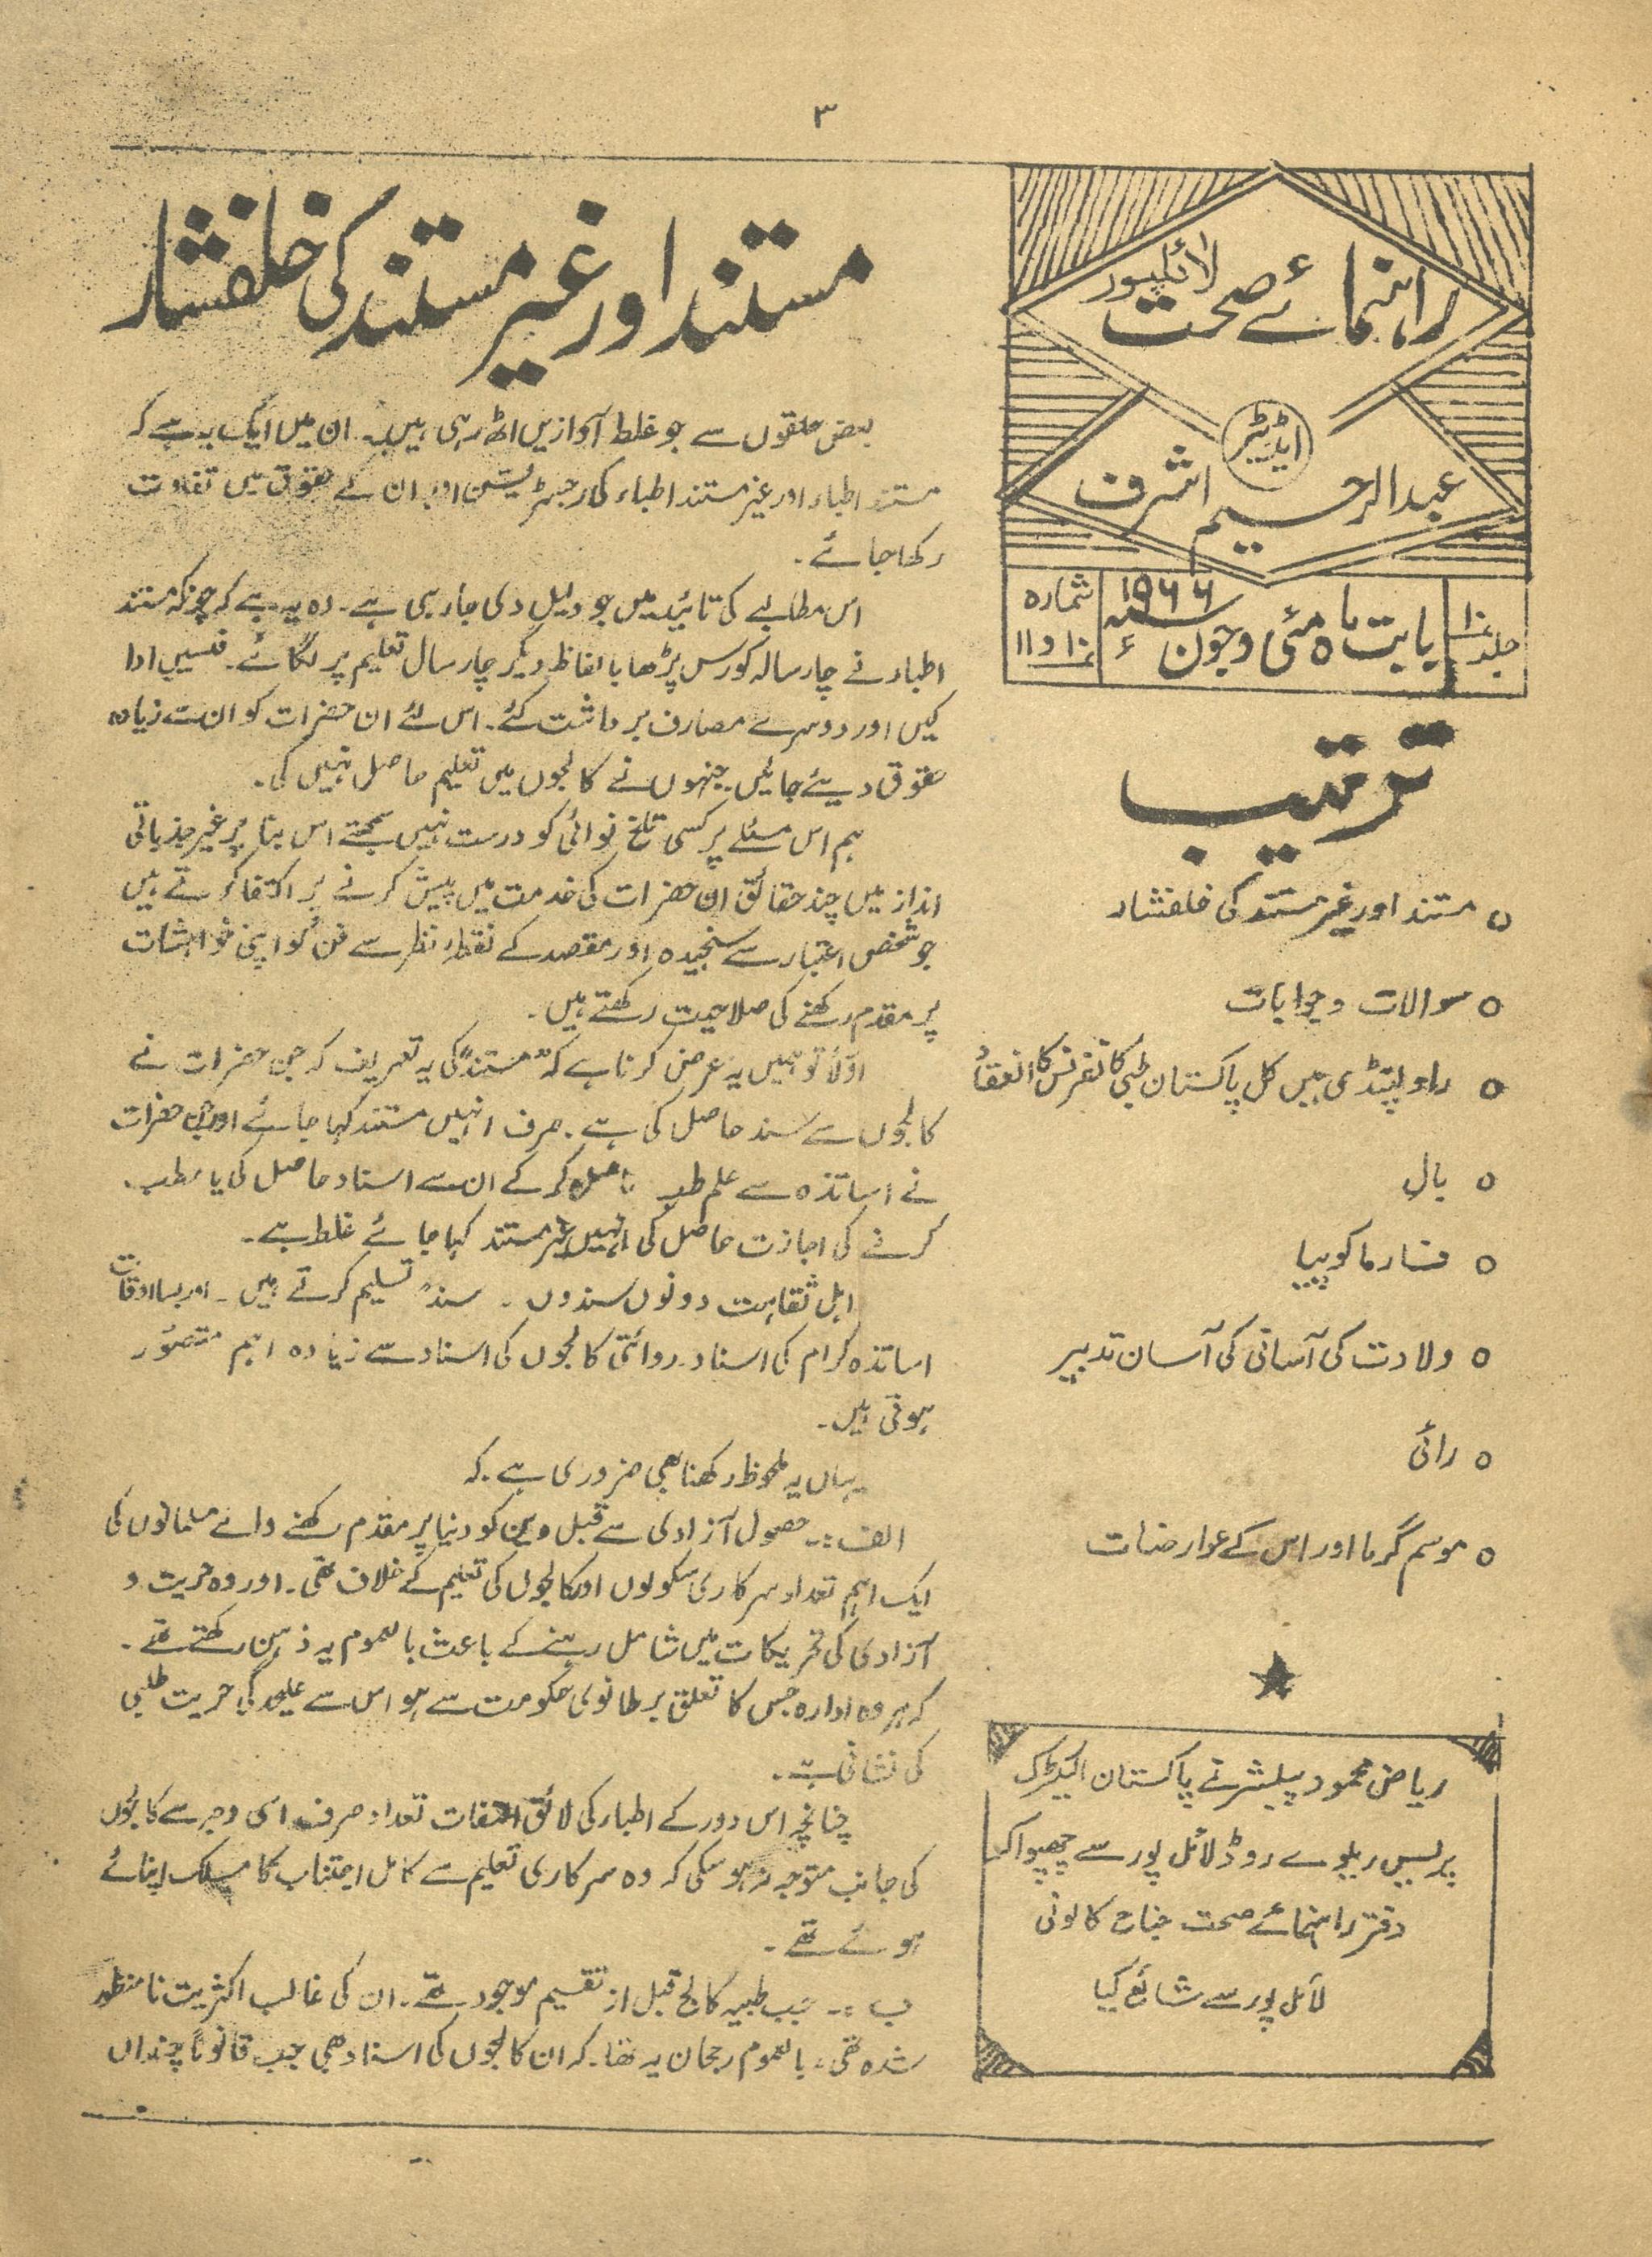 ۳
راہنمائے صحت لائلپور
ایڈیٹر
عبدالرحیم اشرف
جلد ۱۰
بابت ماہ مئی و جون سنہ ۱۹۶۶ء
شمارہ ۱۰ و ۱۱
ترتیب
o مستند اور غیر مستند کی خلفشار
o سوالات و جوابات
o راولپنڈی میں کل پاکستان طبی کانفرنس کا انعقاد
o بال
o فارماکوپیا
o ولادت کی آسانی کی آسان تدبیر
o رائی
o موسم گرما اور اس کے عوارضات
ریاض محمود پبلشر نے پاکستان الیکٹرک
پریس ریلوے روڈ لائل پور سے چھپوا کر
دفتر راہنمائے صحت جناح کالونی
لائل پور سے شائع کیا
مستند اور غیر مستند کی خلفشار
بعض حلقوں سے جو غلط آوازیں اٹھ رہی ہیں۔ ان میں ایک یہ ہے کہ
مستند اطباء اور غیر مستند اطباء کی رجسٹریشن اور ان کے حقوق میں تفاوت
رکھا جائے۔
اس مطالبے کی تائید میں جو دلیل دی جا رہی ہے۔ وہ یہ ہے کہ چونکہ مستند
اطباء نے چار سالہ کورس پڑھا بالفاظ دیگر چار سال تعلیم پر لگائے۔ فیسیں ادا
کیں اور دوسرے مصارف برداشت کئے۔ اس لئے ان حضرات کو ان سے زیادہ
حقوق دیئے جائیں۔ جنہوں نے کالجوں میں تعلیم حاصل نہیں کی۔
ہم اس مسئلے پر کسی تلخ نوائی کو درست نہیں سمجھتے اس بنا پر غیر جذباتی
انداز میں چند حقائق ان حضرات کی خدمت میں پیش کرنے پر اکتفا کرتے ہیں
جو شخصی اعتبار سے سنجیدہ اور مقصد کے نقطہ نظر سے فن کو اپنی خواہشات
پر مقدم رکھنے کی صلاحیت رکھتے ہیں۔
اولاً تو ہمیں یہ عرض کرنا ہے کہ "مستند" کی یہ تعریف کہ جن حضرات نے
کالجوں سے سند حاصل کی ہے۔ صرف انہیں مستند کہا جائے اور جن حضرات
نے اساتذہ سے علم طب حاصل کر کے ان سے اسناد حاصل کی یا مطب
کرنے کی اجازت حاصل کی انہیں غیر مستند کہا جائے غلط ہے۔
اہل ثقاہت دونوں سندوں۔ سند تسلیم کرتے ہیں۔ اور بسا اوقات
اساتذہ کرام کی اسناد۔ روائتی کالجوں کی اسناد سے زیادہ اہم متصور
ہوتی ہیں۔
یہاں یہ ملحوظ رکھنا بھی ضروری ہے۔ کہ
الف :۔ حصول آزادی سے قبل دین کو دنیا پر مقدم رکھنے والے مسلمانوں کی
ایک اہم تعداد سرکاری سکولوں اور کالجوں کی تعلیم کے خلاف تھی۔ اور وہ حریت و
آزادی کی تحریکات میں شامل رہنے کے باعث بالعموم یہ ذہن رکھتے تھے۔
کہ ہر وہ ادارہ جس کا تعلق برطانوی حکومت سے ہو اس سے علیحدگی حریت طلبی
کی نشانی ہے۔
چنانچہ اس دور کے اطباء کی لائق التفات تعداد صرف اسی وجہ سے کالجوں
کی جانب متوجہ نہ ہو سکی کہ وہ سرکاری تعلیم سے کامل اجتناب کا مسلک اپنائے
ہوئے تھے۔
ب :۔ جب طبیہ کالج قبل از تقسیم موجود تھے۔ ان کی غالب اکثریت نامنظور
شدہ تھی، بالعموم رجحان یہ تھا۔ کہ ان کالجوں کی اسناد بھی جب قانوناً چنداں